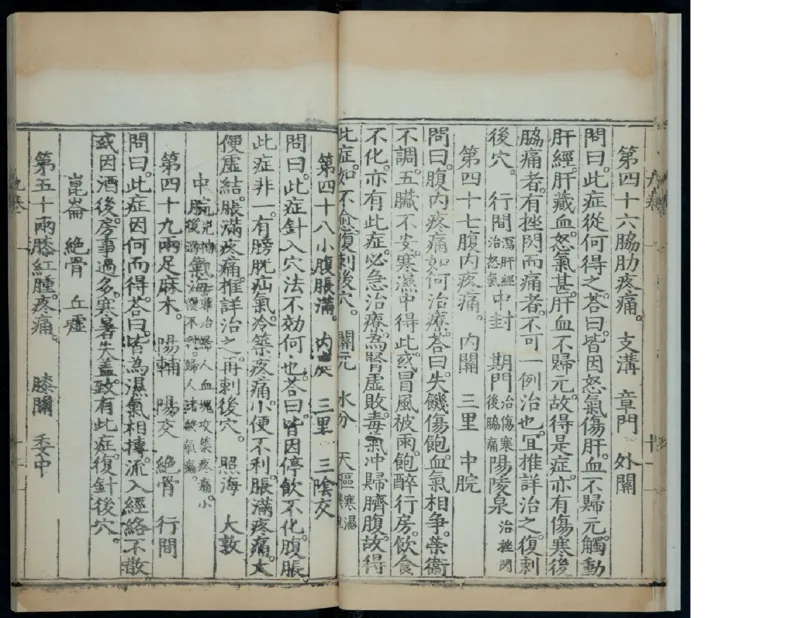 第四十六脇肋疼痛。 支溝 章門 外關
問曰。此症從何得之。荅曰。皆因怒氣傷肝。血不歸元。觸動
肝經。肝藏血。怒氣甚。肝血不歸元。故得是症。亦有傷寒後
脇痛者。有挫閃而痛者。不可一例治也。宜推詳治之。復刺
後穴。 行間瀉肝經治怒氣 中封 期門治傷寒後脇痛 陽陵泉治挫閃
第四十七腹內疼痛。 內關 三里 中脘
問曰。腹內疼痛如何治療。荅曰。失饑傷飽。血氣相爭。榮衛
不調。五臟不安。寒濕中得此。或冒風被雨。飽醉行房。飲食
不化。亦有此症。必急治療。為腎虛敗。毒氣冲歸臍腹。故得
此症。如不愈。復刺後穴。 關元 水分 天樞寒濕
第四十八小腹脹滿。 內庭 三里 三陰交
問曰。此症針入穴法不効。何也。荅曰。皆因停飲不化。腹脹
此症非一。有膀胱疝氣。冷築疼痛。小便不利。脹滿疼痛。大
便虛結。脹滿疼痛。推詳治之。再刺後穴。 照海 大敦
中脘 氣海專治婦人血塊攻築疼痛。小便不利。婦人諸般氣痛。
第四十九兩足麻木。 陽輔 陽交 絕骨 行間
問曰。此症因何而得。荅曰。皆為濕氣相摶。流入經絡不散。
或因酒後。房事過多。寒暑失蓋。致有此症。復針後穴。
崑崙 絕骨 丘墟
第五十兩膝紅腫疼痛。 膝關 委中